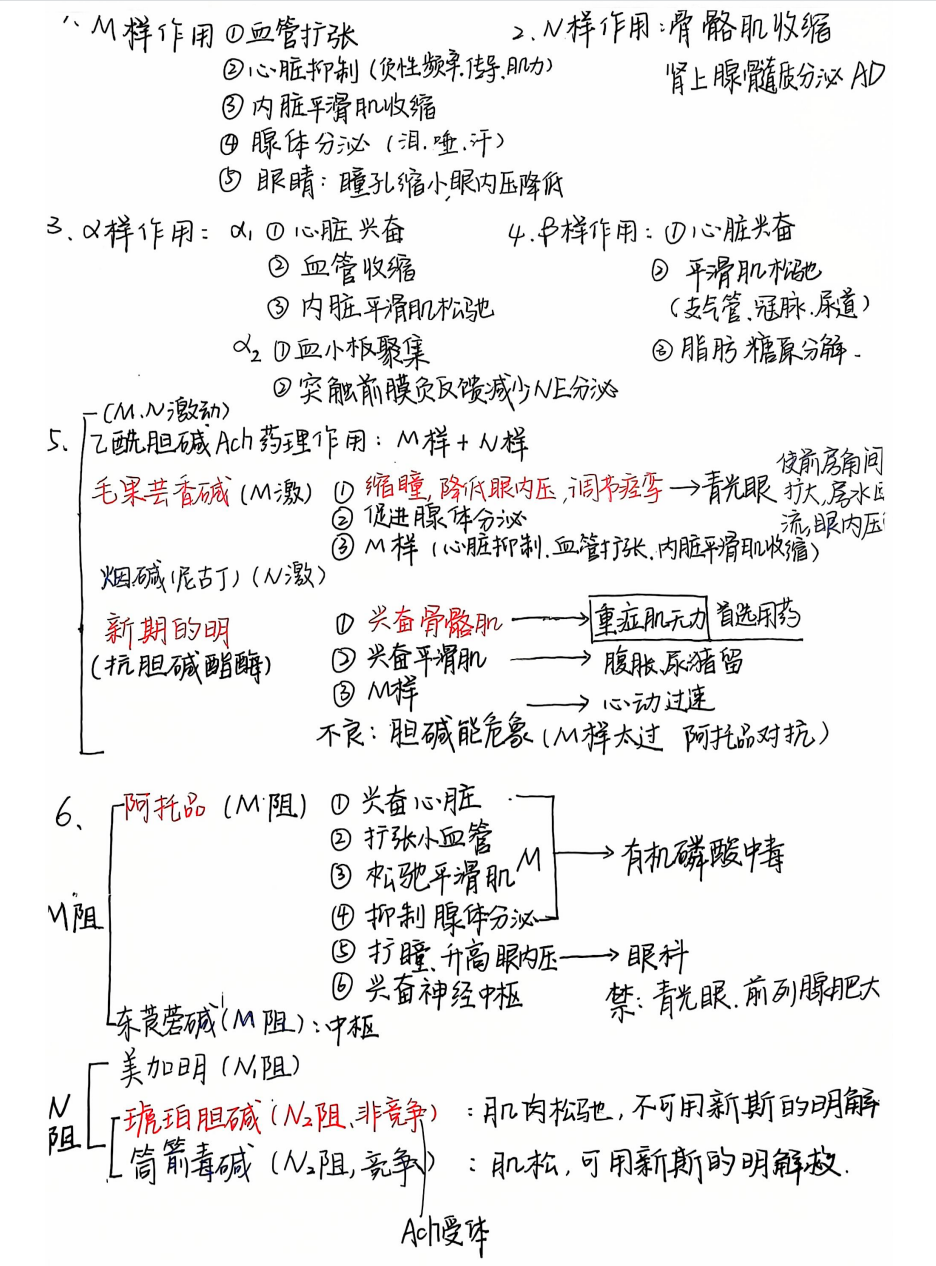 1、M样作用 ①血管扩张 2、N样作用：骨骼肌收缩
②心脏抑制（负性频率.传导.肌力） 肾上腺髓质分泌AD
③内脏平滑肌收缩
④腺体分泌（泪.唾.汗）
⑤眼睛：瞳孔缩小,眼内压降低
3、α样作用：α₁ ①心脏兴奋 4、β样作用：①心脏兴奋
②血管收缩 ②平滑肌松弛
③内脏平滑肌松弛 （支气管、冠脉.尿道）
α₂ ①血小板聚集 ③脂肪糖原分解.
②突触前膜负反馈减少NE分泌
（M、N激动）
5、乙酰胆碱Ach药理作用：M样+N样
毛果芸香碱（M激） ①缩瞳,降低眼内压,调节痉挛→青光眼 使前房角间
扩大,房水
②促进腺体分泌 流,眼内压
③M样（心脏抑制.血管扩张、内脏平滑肌收缩）
烟碱(尼古丁)（N激）
新期的明 ①兴奋骨骼肌→重症肌无力 首选用药
（抗胆碱酯酶） ②兴奋平滑肌→腹胀、尿潴留
③M样→心动过速
不良：胆碱能危象（M样太过 阿托品对抗）
6、阿托品（M阻） ①兴奋心脏
②扩张小血管
③松弛平滑肌 M →有机磷酸中毒
M阻 ④抑制腺体分泌
⑤扩瞳、升高眼内压→眼科
⑥兴奋神经中枢 禁：青光眼.前列腺肥大
东莨菪碱（M阻）：中枢
美加明（N₁阻）
N阻 琥珀胆碱（N₂阻、非竞争）：肌肉松弛，不可用新斯的明解
筒箭毒碱（N₂阻,竞争）：肌松，可用新斯的明解救.
Ach受体